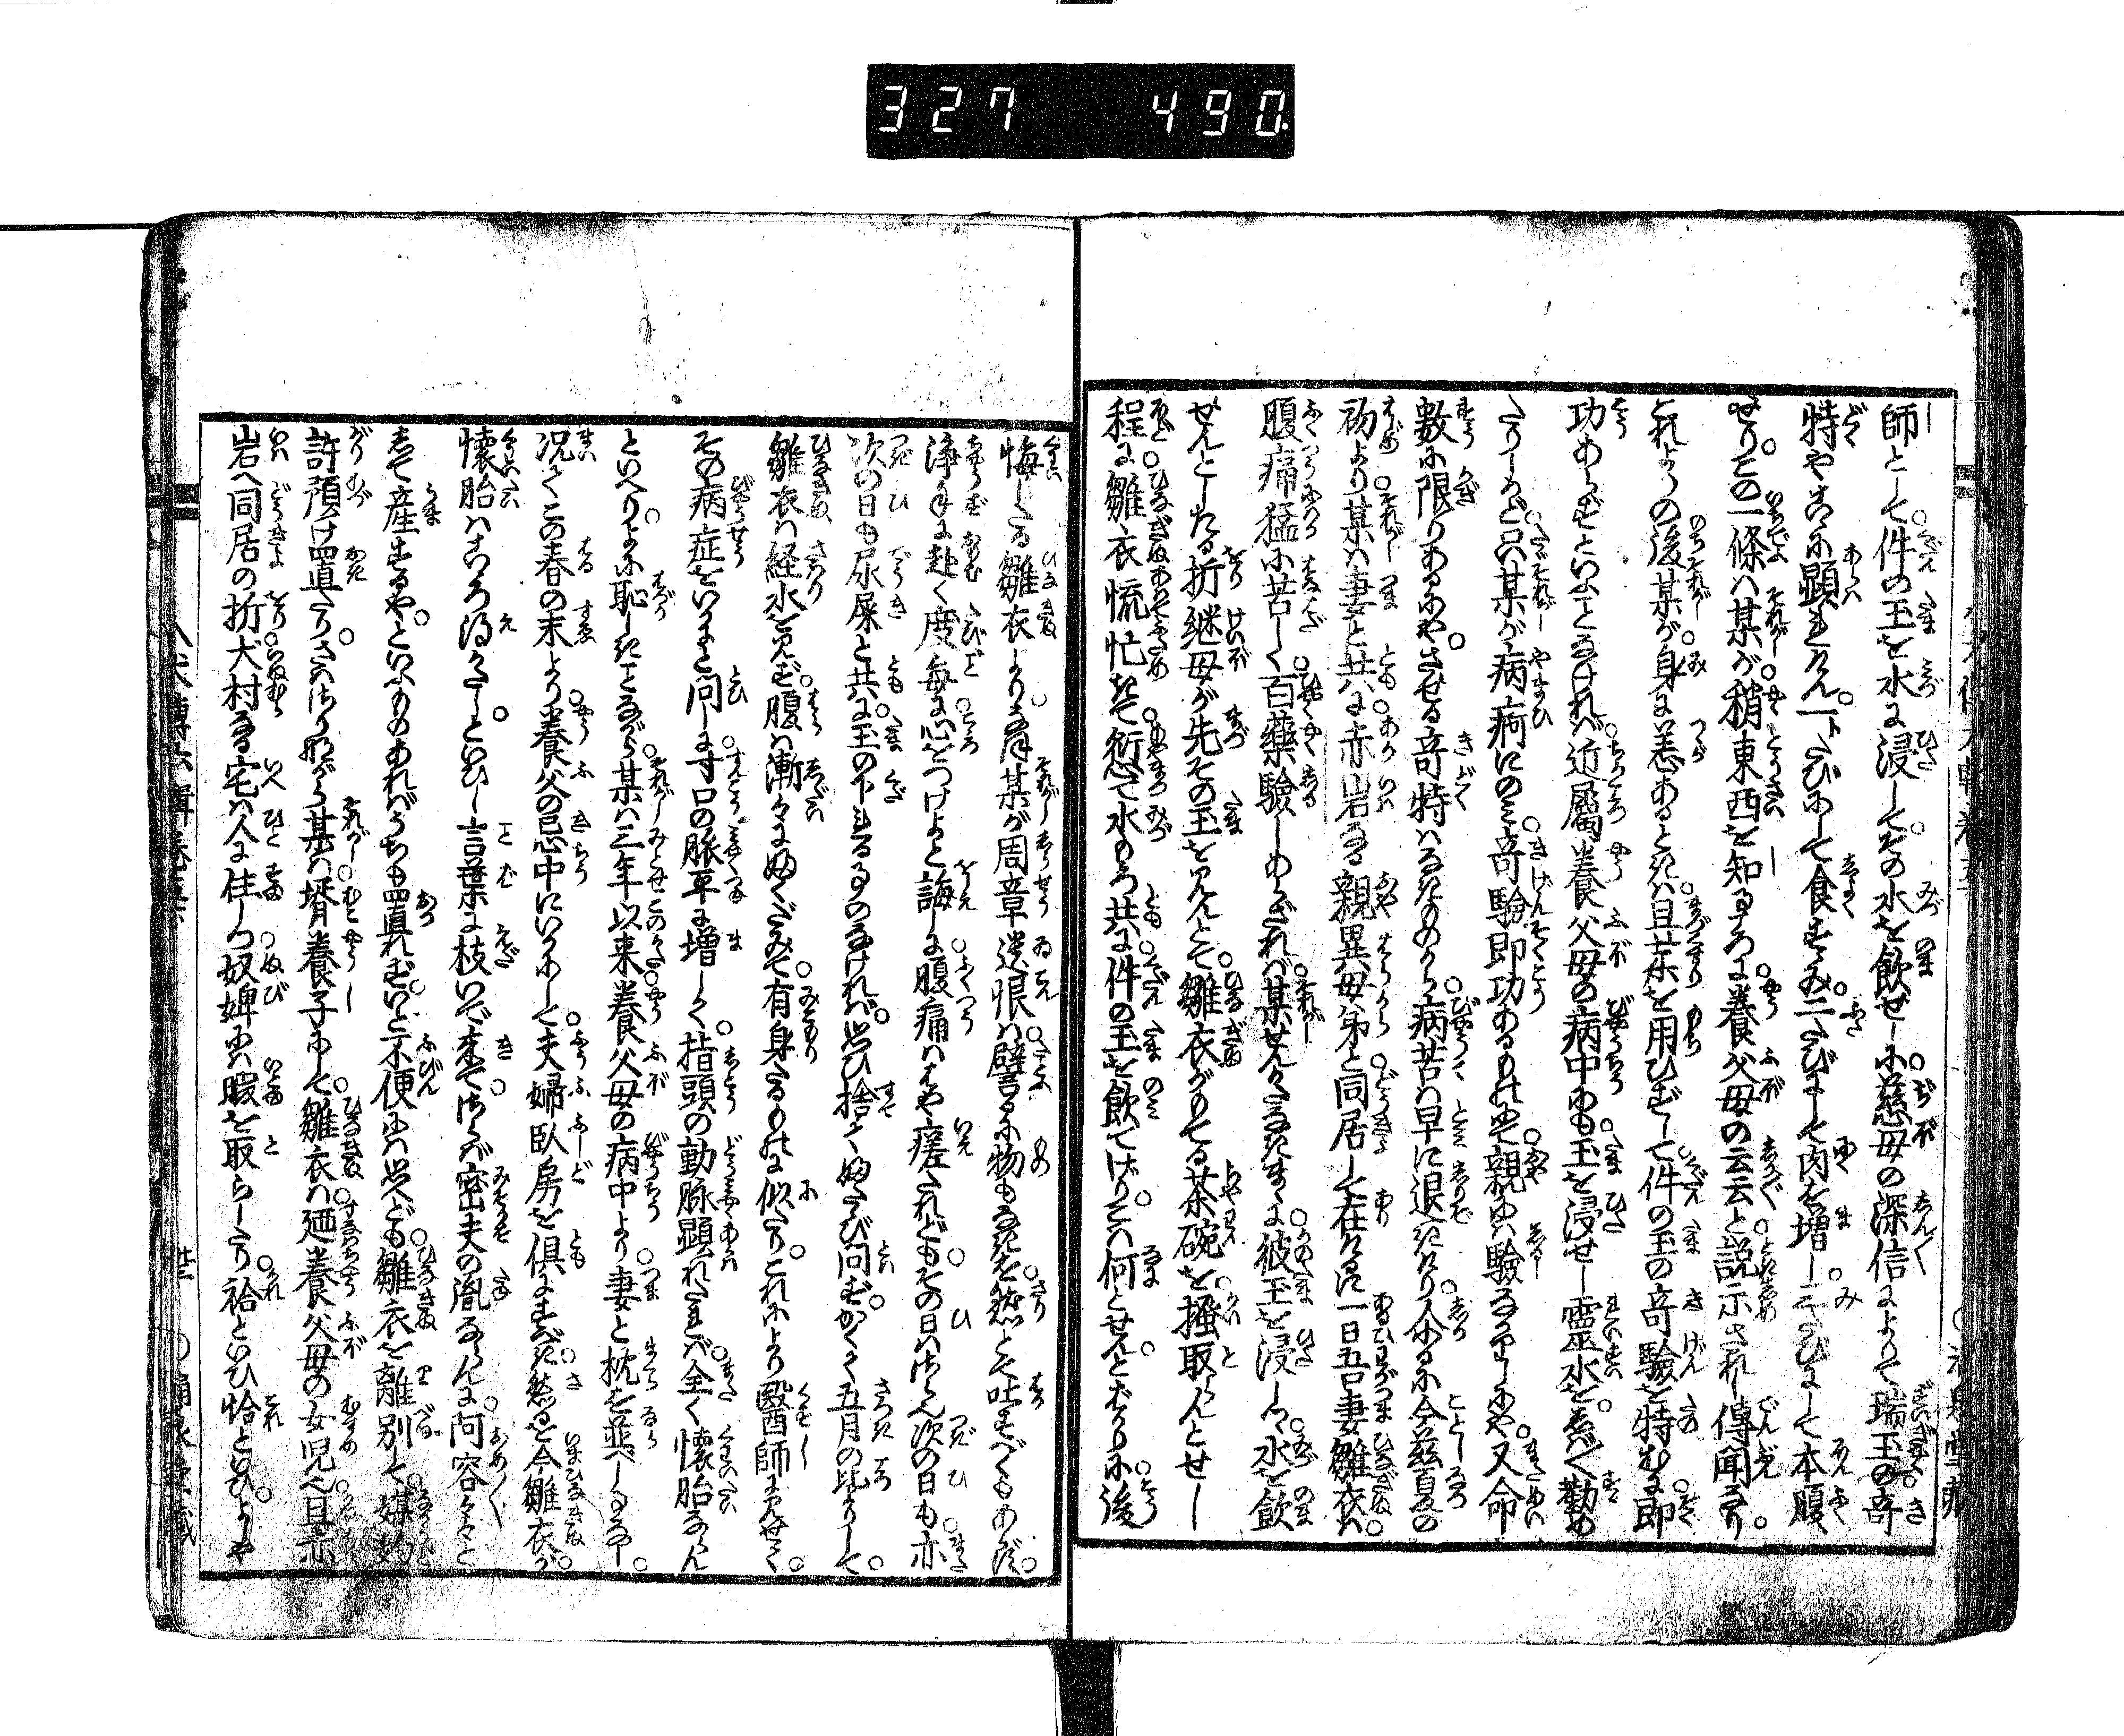 327 490
師として件の玉を水に浸して。その水を飲せしに。慈母の深信によりて瑞玉の奇
特やこゝに顕れけん。一トたびにして食すゝみ。二たびにして肉を増し。三たびにして本腹
せり。この一條は某が。稍東西を知るころに。養父母の云云と説示されし傳聞なり。
これよりの後某が。身に恙あるときは。且茶を用ひずして。件の玉の奇驗を特むに。即
功あらずといふことなければ。近属養父母の病中にも。玉を浸せし霊水を。しばしば勸め
たりしかど。只某が病痾にのみ。奇驗即功あるものにて。親には驗なかりしにや。又命
數に限りあるにや。させる奇特はなきものから。病苦は早に退きにけり。介るに今茲夏の
初より。某は妻と共に。赤岩なる親異母弟と。同居して在ける に一日吾妻雛衣は。
腹痛猛に苦しく。百藥驗しあらざれば。某せんかたなきまゝに。彼玉を浸しゝ。水を飲
せんとしたる折。継母が先その玉を見んとて。雛衣がもてる茶碗を。掻取らんとせし
程に。雛衣慌忙きて。愆て水もろ共に。件の玉を飲てけり。こは何とせんとばかりに。後
悔しつる雛衣より。なほ某が周章遺恨は。譬るに物もなきを。然とて吐すべくもあらず。
浄手に赴く度毎に。心をつけよと誨しに。腹痛ははや瘥たれども。その日はさらなり次の日も。亦
次の日も尿屎と共に。玉の下れることのなければ。思ひ捨て。ふたゝび問ず。かくて五月の比よりして。
雛衣は経水を見ず。腹は漸々にふくだみて。有身たるものに似たり。これにより醫師に見せて。
その病症をいかにと問しに。寸口の脈平に増して。指頭の動脉顕れたれば。全く懐胎ならん
といへり。よに恥しきことながら。某は三年以来。養父母の病中より。妻と枕を並べしことなし。
况てこの春の末より。養父の忌中にいかにして。夫婦臥房を倶にすべき。然るを今雛衣が。
懐胎はこゝろ得がたしといひし。言葉に枝いで来て。さらば密夫の胤ならんに。阿容々々と
して産するや。といふものあればうちも置れず。いと不便には思へども。雛衣を離別して。媒妁
許預け置たり。さはさりながら某は。壻養子にして。雛衣は廼養父母の女児也。且赤
岩へ同居の折。犬村なる宅は人に住しつ。奴婢には暇を取らしたり。袷といひ恰といひ。よしや